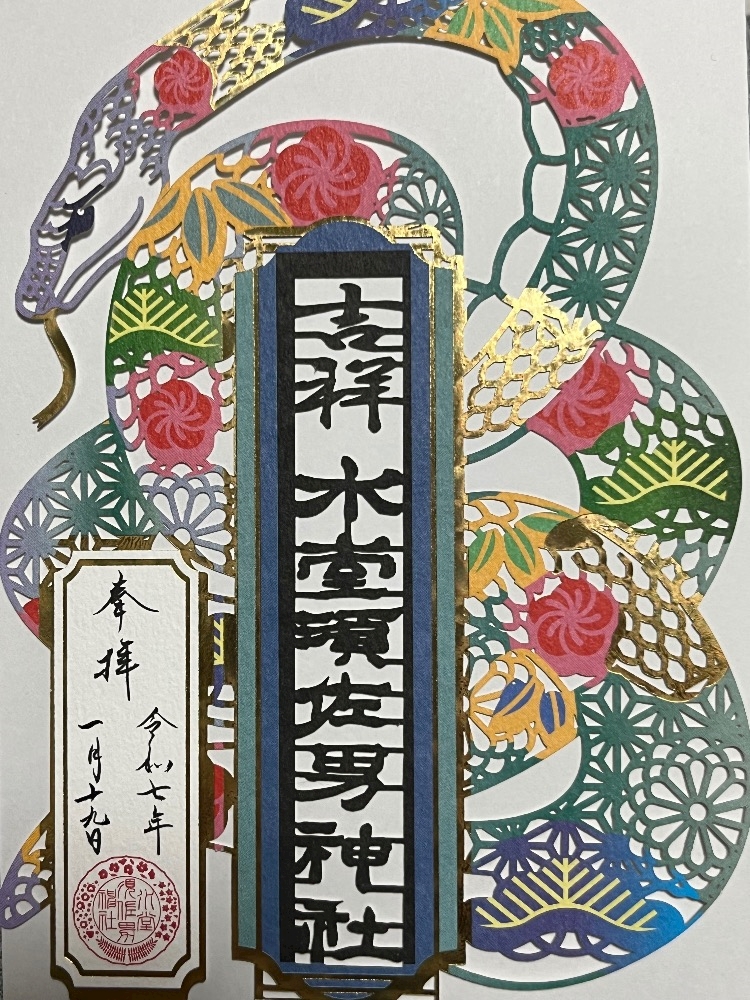 吉祥 水堂須佐男神社
奉拝
令和七年
一月十九日
水堂
須佐男
神社